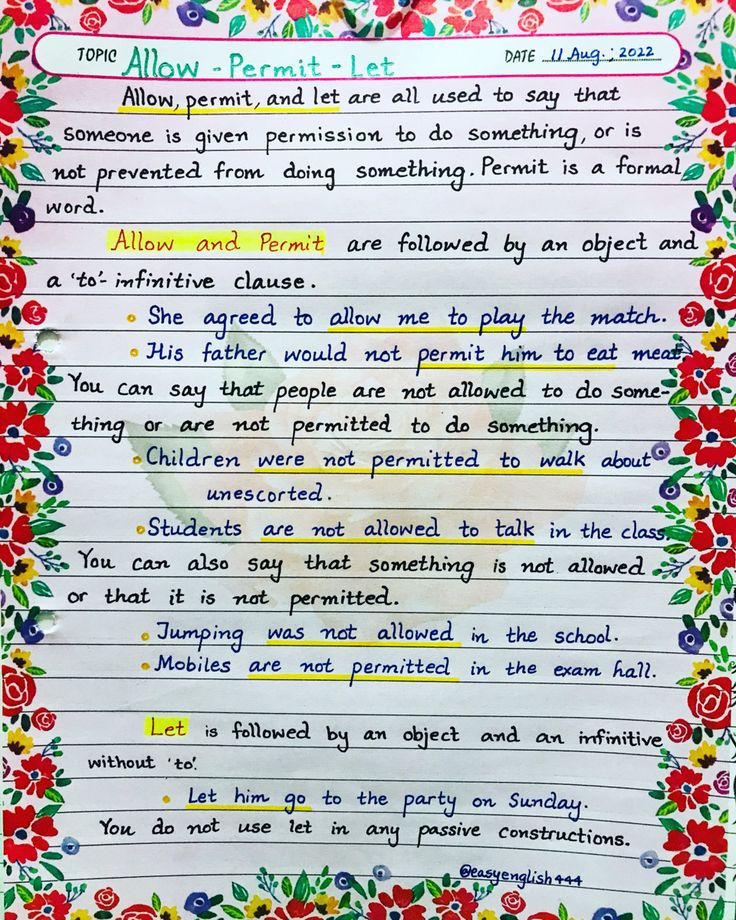 TOPIC Allow - Permit - Let DATE 11 Aug.; 2022
Allow, permit, and let are all used to say that
someone is given permission to do something, or is
not prevented from doing something. Permit is a formal
word.
Allow and Permit are followed by an object and
a 'to'- infinitive clause.
• She agreed to allow me to play the match.
• His father would not permit him to eat meat
You can say that people are not allowed to do some-
thing or are not permitted to do something.
• Children were not permitted to walk about
unescorted.
• Students are not allowed to talk in the class.
You can also say that something is not allowed
or that it is not permitted.
• Jumping was not allowed in the school.
• Mobiles are not permitted in the exam hall.
Let is followed by an object and an infinitive
without 'to'.
• Let him go to the party on Sunday.
You do not use let in any passive constructions.
@easyenglish444